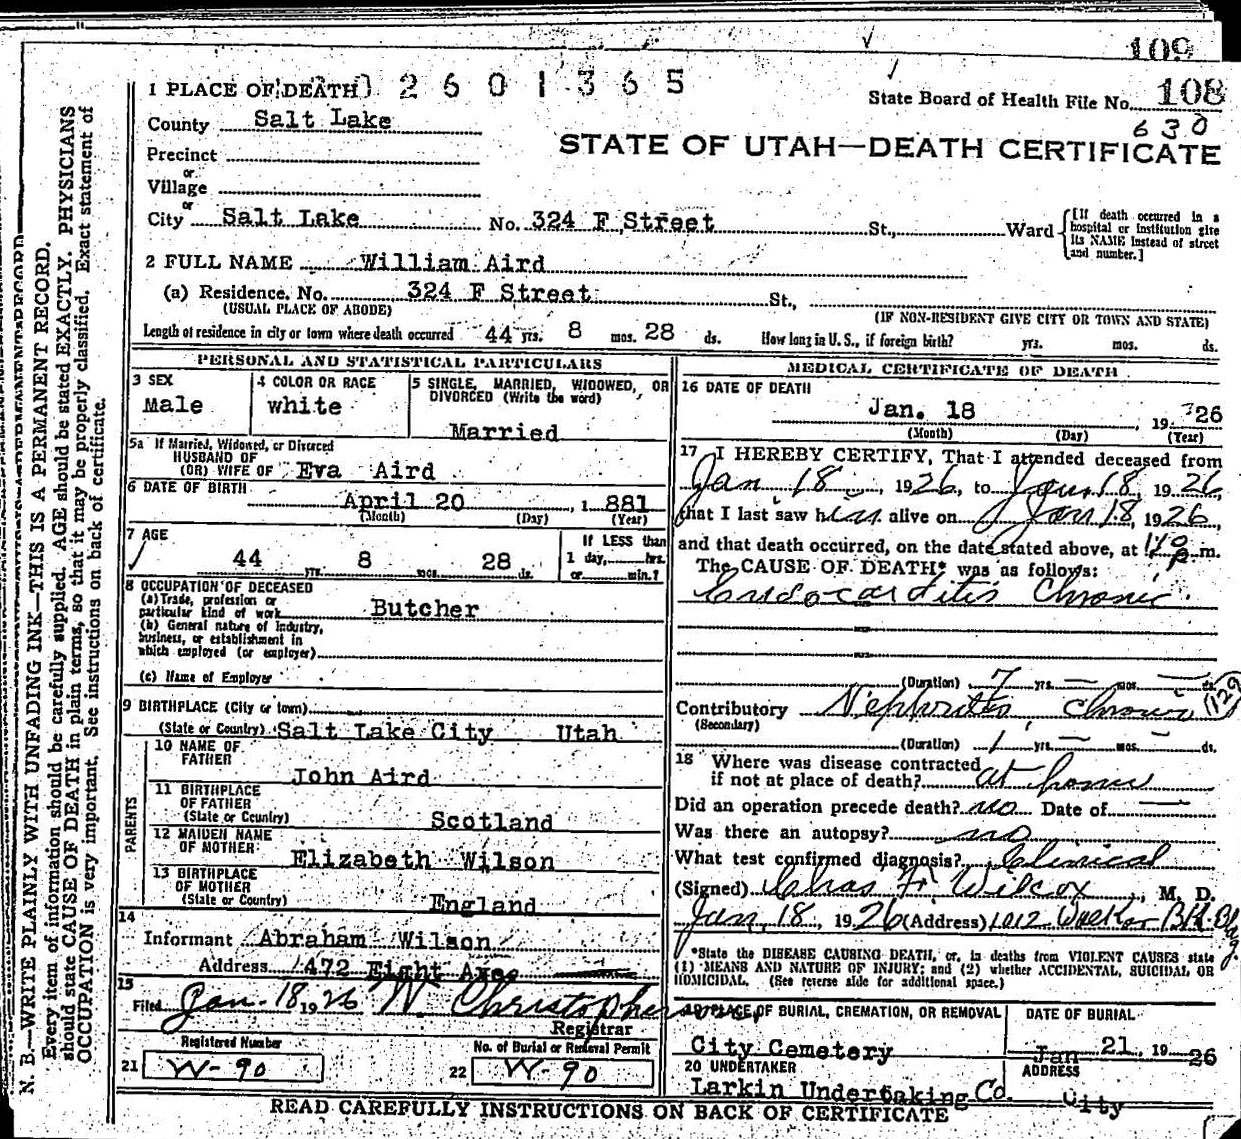 109
1 PLACE OF DEATH 2601365
State Board of Health File No. 108
630
County Salt Lake
STATE OF UTAH—DEATH CERTIFICATE
Precinct
or
Village
or
City Salt Lake No. 324 F Street St., Ward
[If death occurred in a hospital or institution give its NAME instead of street and number.]
2 FULL NAME William Aird
(a) Residence. No. 324 F Street St.,
(USUAL PLACE OF ABODE) (IF NON-RESIDENT GIVE CITY OR TOWN AND STATE)
Length of residence in city or town where death occurred 44 yrs. 8 mos. 28 ds. How long in U. S., if foreign birth? yrs. mos. ds.
PERSONAL AND STATISTICAL PARTICULARS
3 SEX
Male
4 COLOR OR RACE
white
5 SINGLE, MARRIED, WIDOWED, OR
DIVORCED (Write the word)
Married
5a If Married, Widowed, or Divorced
HUSBAND OF
(OR) WIFE OF Eva Aird
6 DATE OF BIRTH
April 20, 1 881
(Month) (Day) (Year)
7 AGE
44 yrs. 8 mos. 28 ds.
If LESS than
1 day, hrs.
or min.?
8 OCCUPATION OF DECEASED
(a) Trade, profession or
particular kind of work Butcher
(b) General nature of Industry,
business, or establishment in
which employed (or employer)
(c) Name of Employer
9 BIRTHPLACE (City or town)
(State or Country) Salt Lake City Utah
PARENTS
10 NAME OF
FATHER
John Aird
11 BIRTHPLACE
OF FATHER
(State or Country) Scotland
12 MAIDEN NAME
OF MOTHER
Elizabeth Wilson
13 BIRTHPLACE
OF MOTHER
(State or Country) England
14
Informant Abraham Wilson
Address 1472 Eight Axes
15
Filed Jan. 18 1926 W Christophersen
Registrar
Registered Number
21 W-90
No. of Burial or Removal Permit
22 W-90
MEDICAL CERTIFICATE OF DEATH
16 DATE OF DEATH
Jan. 18, 19 26
(Month) (Day) (Year)
17 I HEREBY CERTIFY, That I attended deceased from
Jan 18, 1926, to Jan. 18, 1926,
that I last saw him alive on Jan 18, 1926,
and that death occurred, on the date stated above, at p.m.
The CAUSE OF DEATH* was as follows:
Endocarditis Chronic
(Duration) 7 yrs. — mos. — ds.
Contributory Nephritis, Chronic (129)
(Secondary)
(Duration) 1 yrs. — mos. — ds.
18 Where was disease contracted
if not at place of death? at home
Did an operation precede death? no Date of —
Was there an autopsy? no
What test confirmed diagnosis? Clinical
(Signed) Chas F. Wilcox, M. D.
Jan, 18, 1926 (Address) 1012 Walker BK Bldg.
*State the DISEASE CAUSING DEATH, or, in deaths from VIOLENT CAUSES state
(1) MEANS AND NATURE OF INJURY; and (2) whether ACCIDENTAL, SUICIDAL OR
HOMICIDAL. (See reverse side for additional space.)
19 PLACE OF BURIAL, CREMATION, OR REMOVAL
City Cemetery
DATE OF BURIAL
Jan 21, 19 26
20 UNDERTAKER
Larkin Undertaking Co.
ADDRESS
City
READ CAREFULLY INSTRUCTIONS ON BACK OF CERTIFICATE
N. B.—WRITE PLAINLY WITH UNFADING INK—THIS IS A PERMANENT RECORD.
Every item of information should be carefully supplied. AGE should be stated EXACTLY. PHYSICIANS
should state CAUSE OF DEATH in plain terms, so that it may be properly classified. Exact statement of
OCCUPATION is very important. See instructions on back of certificate.